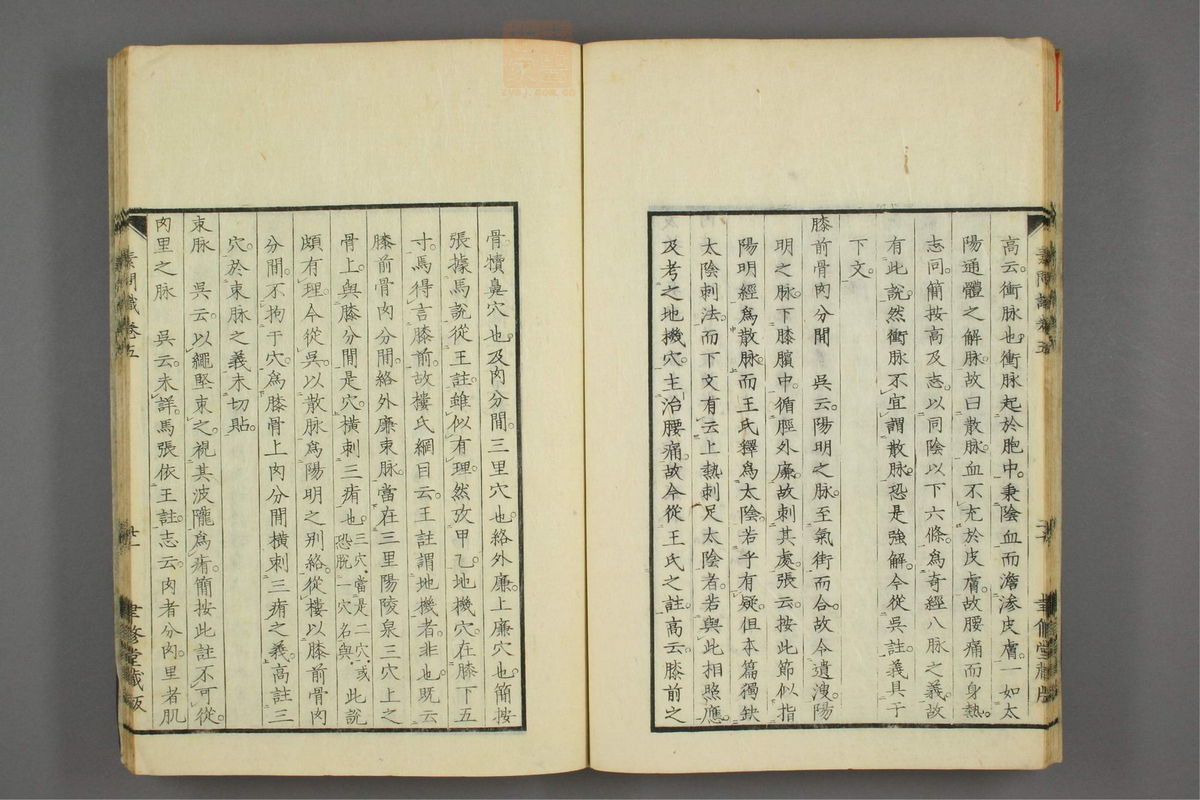 高云。衝脉也。衝脉起於胞中。秉陰血而澹滲皮膚。一如太
陽通體之解脉。故曰散脉。血不充於皮膚。故腰痛而身熱。
志同。簡按高及志。以同陰以下六條。爲奇經八脉之義。故
有此說。然衝脉不宜謂散脉。恐是強解。今從吳註。義具于
下文。
膝前骨肉分間　吳云。陽明之脉。至氣街而合。故今遺溲。陽
明之脉。下膝臏中。循脛外廉。故刺其處。張云。按此節似指
陽明經爲散脉。而王氏釋爲太陰。若乎有疑。但本篇獨缺
太陰刺法。而下文有云上熱刺足太陰者。若與此相照應。
及考之地機穴。主治腰痛。故今從王氏之註。高云。膝前之
骨。犢鼻穴也。及肉分間。三里穴也。絡外廉。上廉穴也。簡按
張據馬說從王註。雖似有理。然攷甲乙。地機穴在膝下五
寸。馬得言膝前。故樓氏綱目云。王註謂地機者。非也。既云
膝前骨肉分間。絡外廉束脉。當在三里陽陵泉三穴上之
骨上。與膝分間是穴。橫刺三痏也。三穴。當是二穴。或此說恐脫一穴名與
頗有理。今從吳。以散脉爲陽明之別絡。從樓以膝前骨肉
分間。不拘于穴。爲膝骨上肉分間橫刺三痏之義。高註三
穴。於束脉之義未切貼。
束脉　吳云。以繩堅束之。視其波隴爲痏。簡按此註不可從。
肉里之脉　吳云。未詳。馬張依王註。志云。肉者分肉。里者肌
素問識卷五
廿一
聿修堂藏版